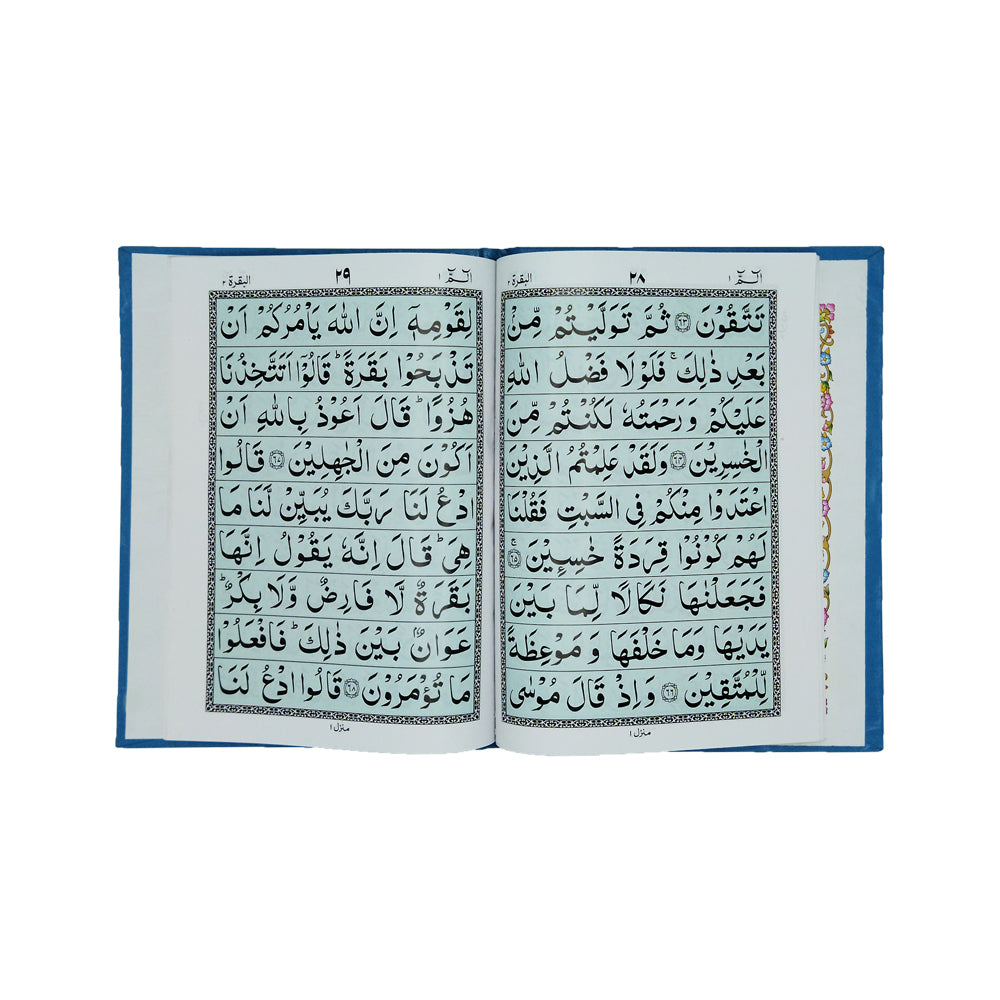 الٓمّٓ ١ ٢٨ البقرة ٢
تَتَّقُوْنَ ۝٦٣ ثُمَّ تَوَلَّيْتُمْ مِّنْۢ
بَعْدِ ذٰلِكَ ۚ فَلَوْلَا فَضْلُ اللّٰهِ
عَلَيْكُمْ وَرَحْمَتُهٗ لَكُنْتُمْ مِّنَ
الْخٰسِرِيْنَ ۝٦٤ وَلَقَدْ عَلِمْتُمُ الَّذِيْنَ
اعْتَدَوْا مِنْكُمْ فِى السَّبْتِ فَقُلْنَا
لَهُمْ كُوْنُوْا قِرَدَةً خٰسِـِٕيْنَ ۝٦٥ۚ
فَجَعَلْنٰهَا نَكَالًا لِّمَا بَيْنَ
يَدَيْهَا وَمَا خَلْفَهَا وَمَوْعِظَةً
لِّلْمُتَّقِيْنَ ۝٦٦ وَاِذْ قَالَ مُوْسٰى
منزل ١
الٓمّٓ ١ ٢٩ البقرة ٢
لِقَوْمِهٖٓ اِنَّ اللّٰهَ يَاْمُرُكُمْ اَنْ
تَذْبَحُوْا بَقَرَةً ؕ قَالُوْٓا اَتَتَّخِذُنَا
هُزُوًا ؕ قَالَ اَعُوْذُ بِاللّٰهِ اَنْ
اَكُوْنَ مِنَ الْجٰهِلِيْنَ ۝٦٧ قَالُوا
ادْعُ لَنَا رَبَّكَ يُبَيِّنْ لَّنَا مَا
هِىَ ؕ قَالَ اِنَّهٗ يَقُوْلُ اِنَّهَا
بَقَرَةٌ لَّا فَارِضٌ وَّلَا بِكْرٌ ؕ
عَوَانٌۢ بَيْنَ ذٰلِكَ ؕ فَافْعَلُوْا
مَا تُؤْمَرُوْنَ ۝٦٨ قَالُوا ادْعُ لَنَا
منزل ١